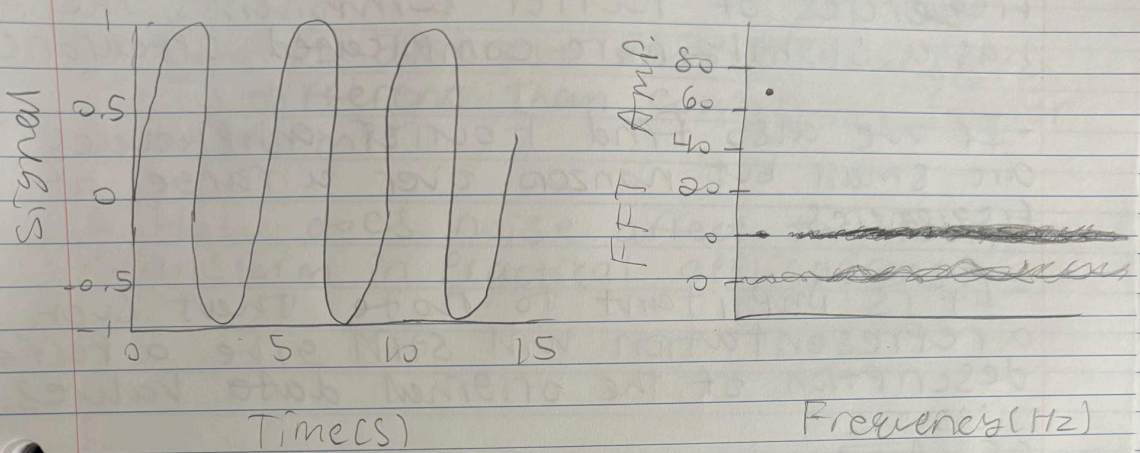 Signal
1
0.5
0
-0.5
-1
0 5 10 15
Time(s)
FFT Amp.
80
60
5
20
0
0
Frequency(Hz)